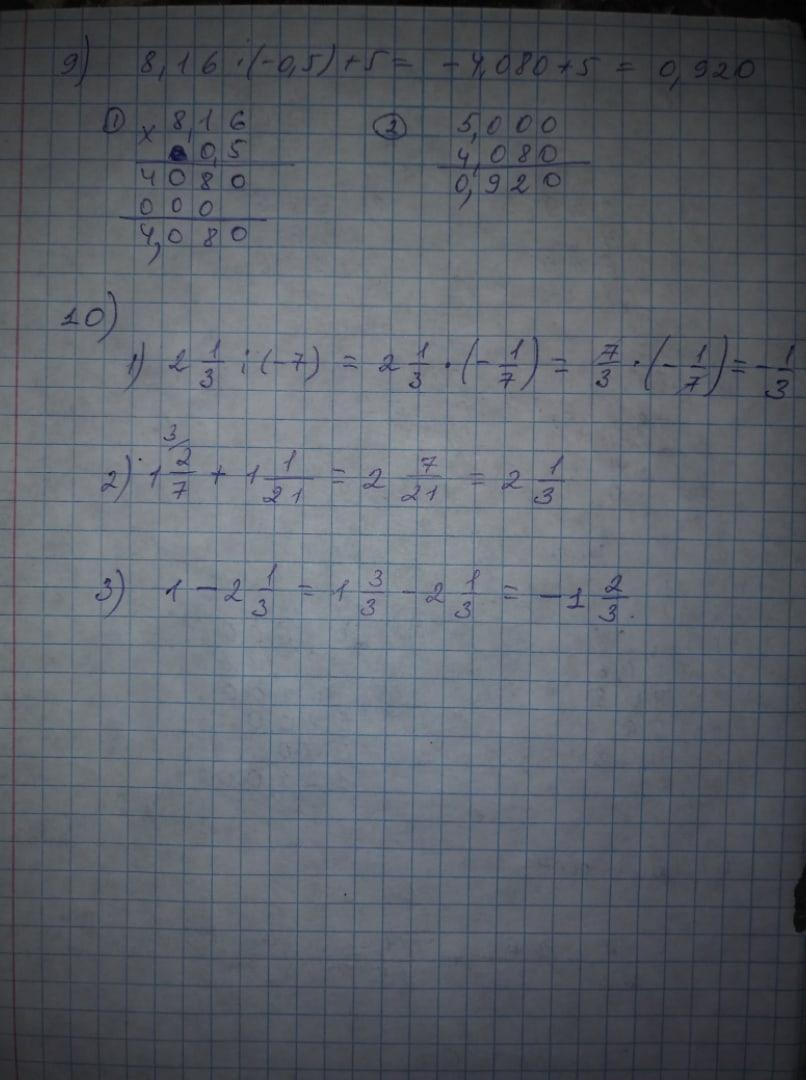 9) 8,16 : (-0,5) + 5 = -4,080 + 5 = 0,920
① × 8,16
0,5
4080
000
4,080
② 5,000
4,080
0,920
10)
1) 2 1/3 : (-7) = 2 1/3 · (-1/7) = 7/3 · (-1/7) = -1/3
2) 1 3/ 2/7 + 1 1/21 = 2 7/21 = 2 1/3
3) 1 - 2 1/3 = 1 3/3 - 2 1/3 = -1 2/3.